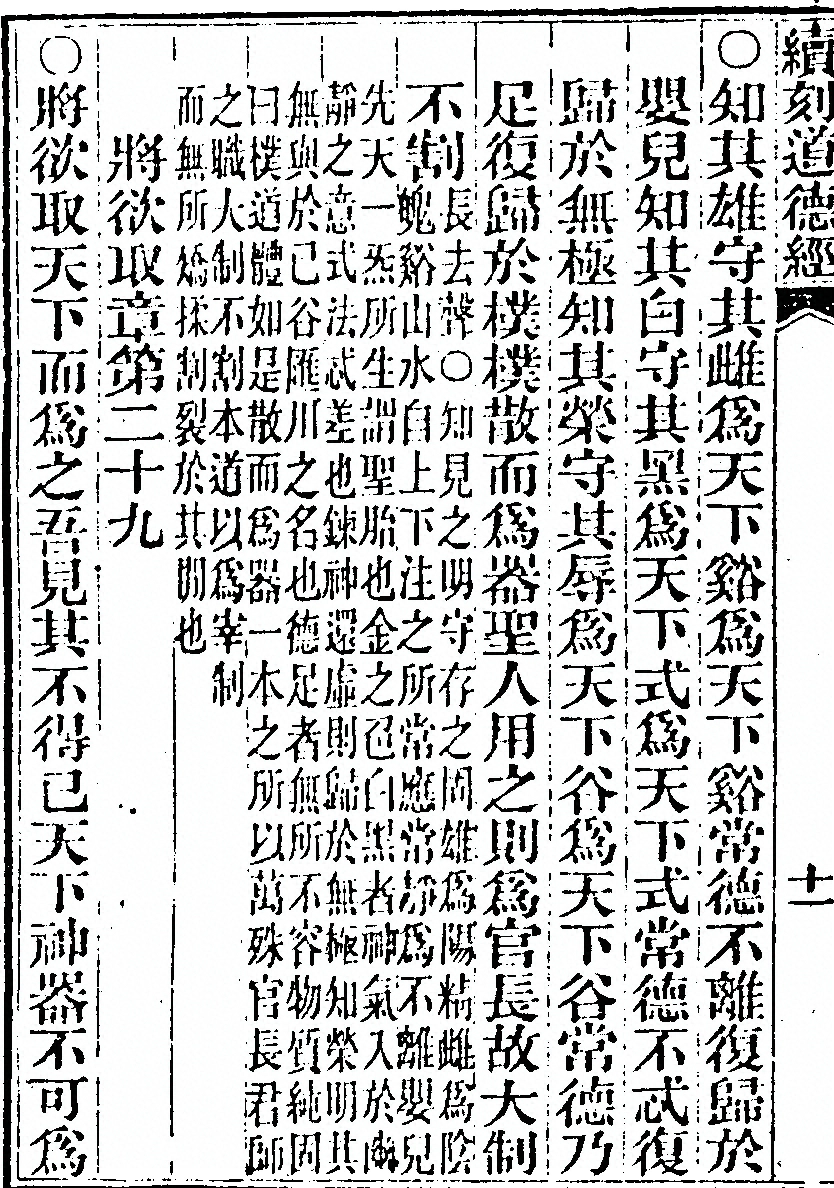 續刻道德經
十一
○知其雄守其雌為天下谿為天下谿常德不離復歸於
嬰兒知其白守其黑為天下式為天下式常德不忒復
歸於無極知其榮守其辱為天下谷為天下谷常德乃
足復歸於樸樸散而為器聖人用之則為官長故大制
不割
長去聲○知見之明守存之固雄為陽精雌為陰
谿山水自上下注之所常應常靜為不離嬰兒
先天一炁所生謂聖胎也金之色白黑者神氣入於幽
靜之意式法忒差也鍊神還虛則歸於無極知榮明其
無與於已谷匯川之名也德足者無所不容物質純固
曰樸道體如是散而為器一本之所以萬殊官長君師
之職大制不割本道以為宰制
而無所矯揉割裂於其間也
將欲取章第二十九
○將欲取天下而為之吾見其不得已天下神器不可為